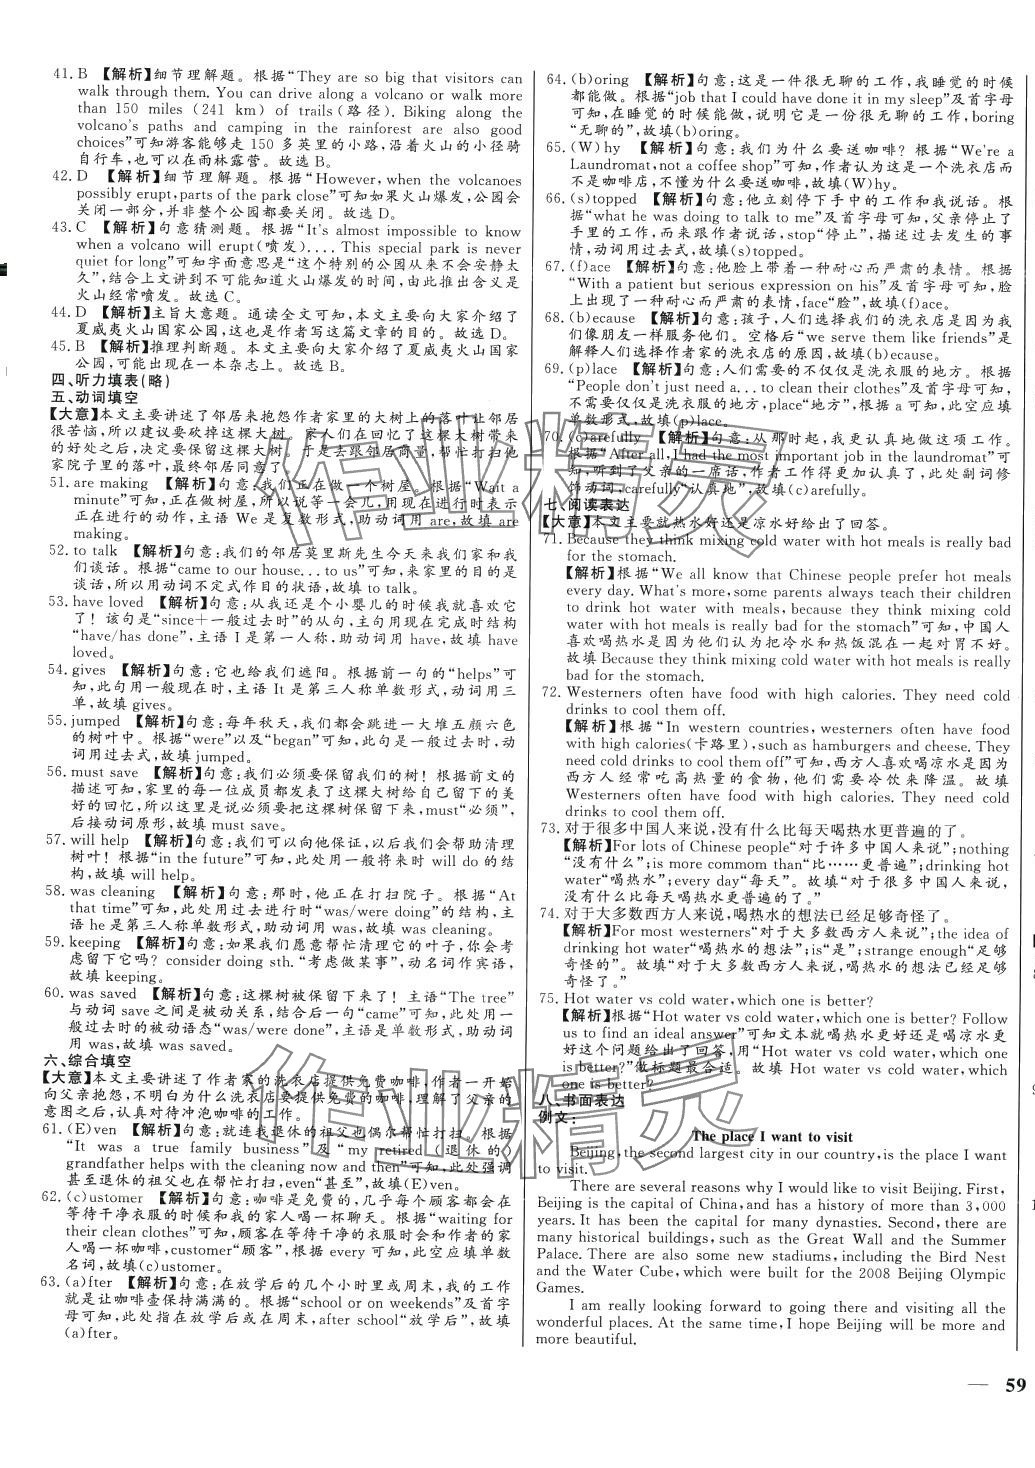 41. B 【解析】细节理解题。根据“They are so big that visitors can
walk through them. You can drive along a volcano or walk more
than 150 miles (241 km) of trails(路径). Biking along the
volcano's paths and camping in the rainforest are also good
choices”可知游客能够走 150 多英里的小路,沿着火山的小径骑
自行车,也可以在雨林露营。故选 B。
42. D 【解析】细节理解题。根据“However, when the volcanoes
possibly erupt, parts of the park close”可知如果火山爆发,公园会
关闭一部分,并非整个公园都要关闭。故选 D。
43. C 【解析】句意猜测题。根据“It's almost impossible to know
when a volcano will erupt(喷发).... This special park is never
quiet for long”可知字面意思是“这个特别的公园从来不会安静太
久”,结合上文讲到不可能知道火山爆发的时间,由此推出含义是
火山经常喷发。故选 C。
44. D 【解析】主旨大意题。通读全文可知,本文主要向大家介绍了
夏威夷火山国家公园,这也是作者写这篇文章的目的。故选 D。
45. B 【解析】推理判断题。本文主要向大家介绍了夏威夷火山国家
公园,可能出现在一本杂志上。故选 B。
四、听力填表(略)
五、动词填空
【大意】本文主要讲述了邻居来抱怨作者家里的大树上的落叶让邻居
很苦恼,所以建议要砍掉这棵大树。家人们在回忆了这棵大树带来
的好处之后,决定要保留这棵大树。于是去跟邻居商量,帮忙打扫他
家院子里的落叶,最终邻居同意了。
51. are making 【解析】句意:我们正在做一个树屋。根据“Wait a
minute”可知,正在做树屋,所以说等一会儿,用现在进行时表示
正在进行的动作,主语 We 是复数形式,助动词用 are,故填 are
making.
52. to talk 【解析】句意:我们的邻居莫里斯先生今天来我们家和我
们谈话。根据“came to our house... to us”可知,来家里的目的是
谈话,所以用动词不定式作目的状语,故填 to talk。
53. have loved 【解析】句意:从我还是个小婴儿的时候我就喜欢它
了!该句是“since+一般过去时”的从句,主句用现在完成时结构
“have/has done”,主语 I 是第一人称,助动词用 have,故填 have
loved。
54. gives 【解析】句意:它也给我们遮阳。根据前一句的“helps”可
知,此句用一般现在时,主语 It 是第三人称单数形式,动词用三
单,故填 gives。
55. jumped 【解析】句意:每年秋天,我们都会跳进一大堆五颜六色
的树叶中。根据“were”以及“began”可知,此句是一般过去时,动
词用过去式,故填 jumped。
56. must save 【解析】句意:我们必须要保留我们的树!根据前文的
描述可知,家里的每一位成员都发表了这棵大树给自己留下的美
好的回忆,所以这里是说必须要把这棵树保留下来,must“必须”,
后接动词原形,故填 must save。
57. will help 【解析】句意:我们可以向他保证,以后我们会帮助清理
树叶!根据“in the future”可知,此处用一般将来时 will do 的结
构,故填 will help。
58. was cleaning 【解析】句意:那时,他正在打扫院子。根据“At
that time”可知,此处用过去进行时“was/were doing”的结构,主
语 he 是第三人称单数形式,助动词用 was,故填 was cleaning。
59. keeping 【解析】句意:如果我们愿意帮忙清理它的叶子,你会考
虑留下它吗? consider doing sth. “考虑做某事”,动名词作宾语,
故填 keeping。
60. was saved 【解析】句意:这棵树被保留下来了!主语“The tree”
与动词 save 之间是被动关系,结合后一句“came”可知,此处用一
般过去时的被动语态“was/were done”,主语是单数形式,助动词
用 was,故填 was saved。
六、综合填空
【大意】本文主要讲述了作者家的洗衣店提供免费咖啡,作者一开始
向父亲抱怨,不明白为什么洗衣店要提供免费的咖啡,理解了父亲的
意图之后,认真对待冲泡咖啡的工作。
61. (E)ven 【解析】句意:就连我退休的祖父也偶尔帮忙打扫。根据
“It was a true family business”及“my retired (退休的)
grandfather helps with the cleaning now and then”可知,此处强调
甚至退休的祖父也在帮忙打扫,even“甚至”,故填(E)ven。
62. (c)ustomer 【解析】句意:咖啡是免费的,几乎每个顾客都会在
等待干净衣服的时候和我的家人喝一杯聊天。根据“waiting for
their clean clothes”可知,顾客在等待干净的衣服时会和作者的家
人喝一杯咖啡,customer“顾客”,根据 every 可知,此空应填单数
名词,故填(c)ustomer。
63. (a)fter 【解析】句意:在放学后的几个小时里或周末,我的工作
就是让咖啡壶保持满满的。根据“school or on weekends”及首字
母可知,此处指在放学后或在周末,after school“放学后”,故填
(a)fter。
64. (b)oring 【解析】句意:这是一件很无聊的工作,我睡觉的时候
都能做。根据“job that I could have done it in my sleep”及首字母
可知,在睡觉的时候能做,说明它是一份很无聊的工作,boring
“无聊的”,故填(b)oring。
65. (W)hy 【解析】句意:我们为什么要送咖啡?根据“We're a
Laundromat, not a coffee shop”可知,作者认为这是一个洗衣店而
不是咖啡店,不懂为什么要送咖啡,故填(W)hy。
66. (s)topped 【解析】句意:他立刻停下手中的工作和我说话。根
据“what he was doing to talk to me”及首字母可知,父亲停止了
手里的工作,而来跟作者说话,stop“停止”,描述过去发生的事
情,动词用过去式,故填(s)topped。
67. (f)ace 【解析】句意:他脸上带着一种耐心而严肃的表情。根据
“With a patient but serious expression on his”及首字母可知,脸
上出现了一种耐心和严肃的表情,face“脸”,故填(f)ace。
68. (b)ecause 【解析】句意:孩子,人们选择我们的洗衣店是因为我
们像朋友一样服务他们。空格后“we serve them like friends”是
解释人们选择作者家的洗衣店的原因,故填(b)ecause。
69. (p)lace 【解析】句意:人们需要的不仅仅是洗衣服的地方。根据
“People don't just need a... to clean their clothes”及首字母可知,
不需要仅仅是洗衣服的地方,place“地方”,根据 a 可知,此空应填
单数形式,故填(p)lace。
70. (c)arefully 【解析】句意:从那时起,我更认真地做这项工作。
根据“After all, I had the most important job in the laundromat”可
知,听到了父亲的一席话,作者工作得更加认真了,此处副词修
饰动词,carefully“认真地”,故填(c)arefully。
七、阅读表达
【大意】本文主要就热水好还是凉水好给出了回答。
71. Because they think mixing cold water with hot meals is really bad
for the stomach.
【解析】根据“We all know that Chinese people prefer hot meals
every day. What's more, some parents always teach their children
to drink hot water with meals, because they think mixing cold
water with hot meals is really bad for the stomach”可知,中国人
喜欢喝热水是因为他们认为把冷水和热饭混在一起对胃不好。
故填 Because they think mixing cold water with hot meals is really
bad for the stomach.
72. Westerners often have food with high calories. They need cold
drinks to cool them off.
【解析】根据“In western countries, westerners often have food
with high calories(卡路里), such as hamburgers and cheese. They
need cold drinks to cool them off”可知,西方人喜欢喝凉水是因为
西方人经常吃高热量的食物,他们需要冷饮来降温。故填
Westerners often have food with high calories. They need cold
drinks to cool them off.
73. 对于很多中国人来说,没有什么比每天喝热水更普遍的了。
【解析】For lots of Chinese people“对于许多中国人来说”;nothing
“没有什么”;is more commom than“比……更普遍”;drinking hot
water“喝热水”;every day“每天”。故填“对于很多中国人来说,
没有什么比每天喝热水更普遍的了。”
74. 对于大多数西方人来说,喝热水的想法已经足够奇怪了。
【解析】For most westerners“对于大多数西方人来说”;the idea of
drinking hot water“喝热水的想法”;is“是”;strange enough“足够
奇怪的”。故填“对于大多数西方人来说,喝热水的想法已经足够
奇怪的了。”
75. Hot water vs cold water, which one is better?
【解析】根据“Hot water vs cold water, which one is better? Follow
us to find an ideal answer”可知文本就喝热水更好还是喝凉水更
好这个问题给出了回答,用“Hot water vs cold water, which one
is better?”做标题最合适。故填 Hot water vs cold water, which
one is better?
八、书面表达
例文:
The place I want to visit
Beijing, the second largest city in our country, is the place I want
to visit.
There are several reasons why I would like to visit Beijing. First,
Beijing is the capital of China, and has a history of more than 3,000
years. It has been the capital for many dynasties. Second, there are
many historical buildings, such as the Great Wall and the Summer
Palace. There are also some new stadiums, including the Bird Nest
and the Water Cube, which were built for the 2008 Beijing Olympic
Games.
I am really looking forward to going there and visiting all the
wonderful places. At the same time, I hope Beijing will be more and
more beautiful.
— 59
作业精灵
作业精灵